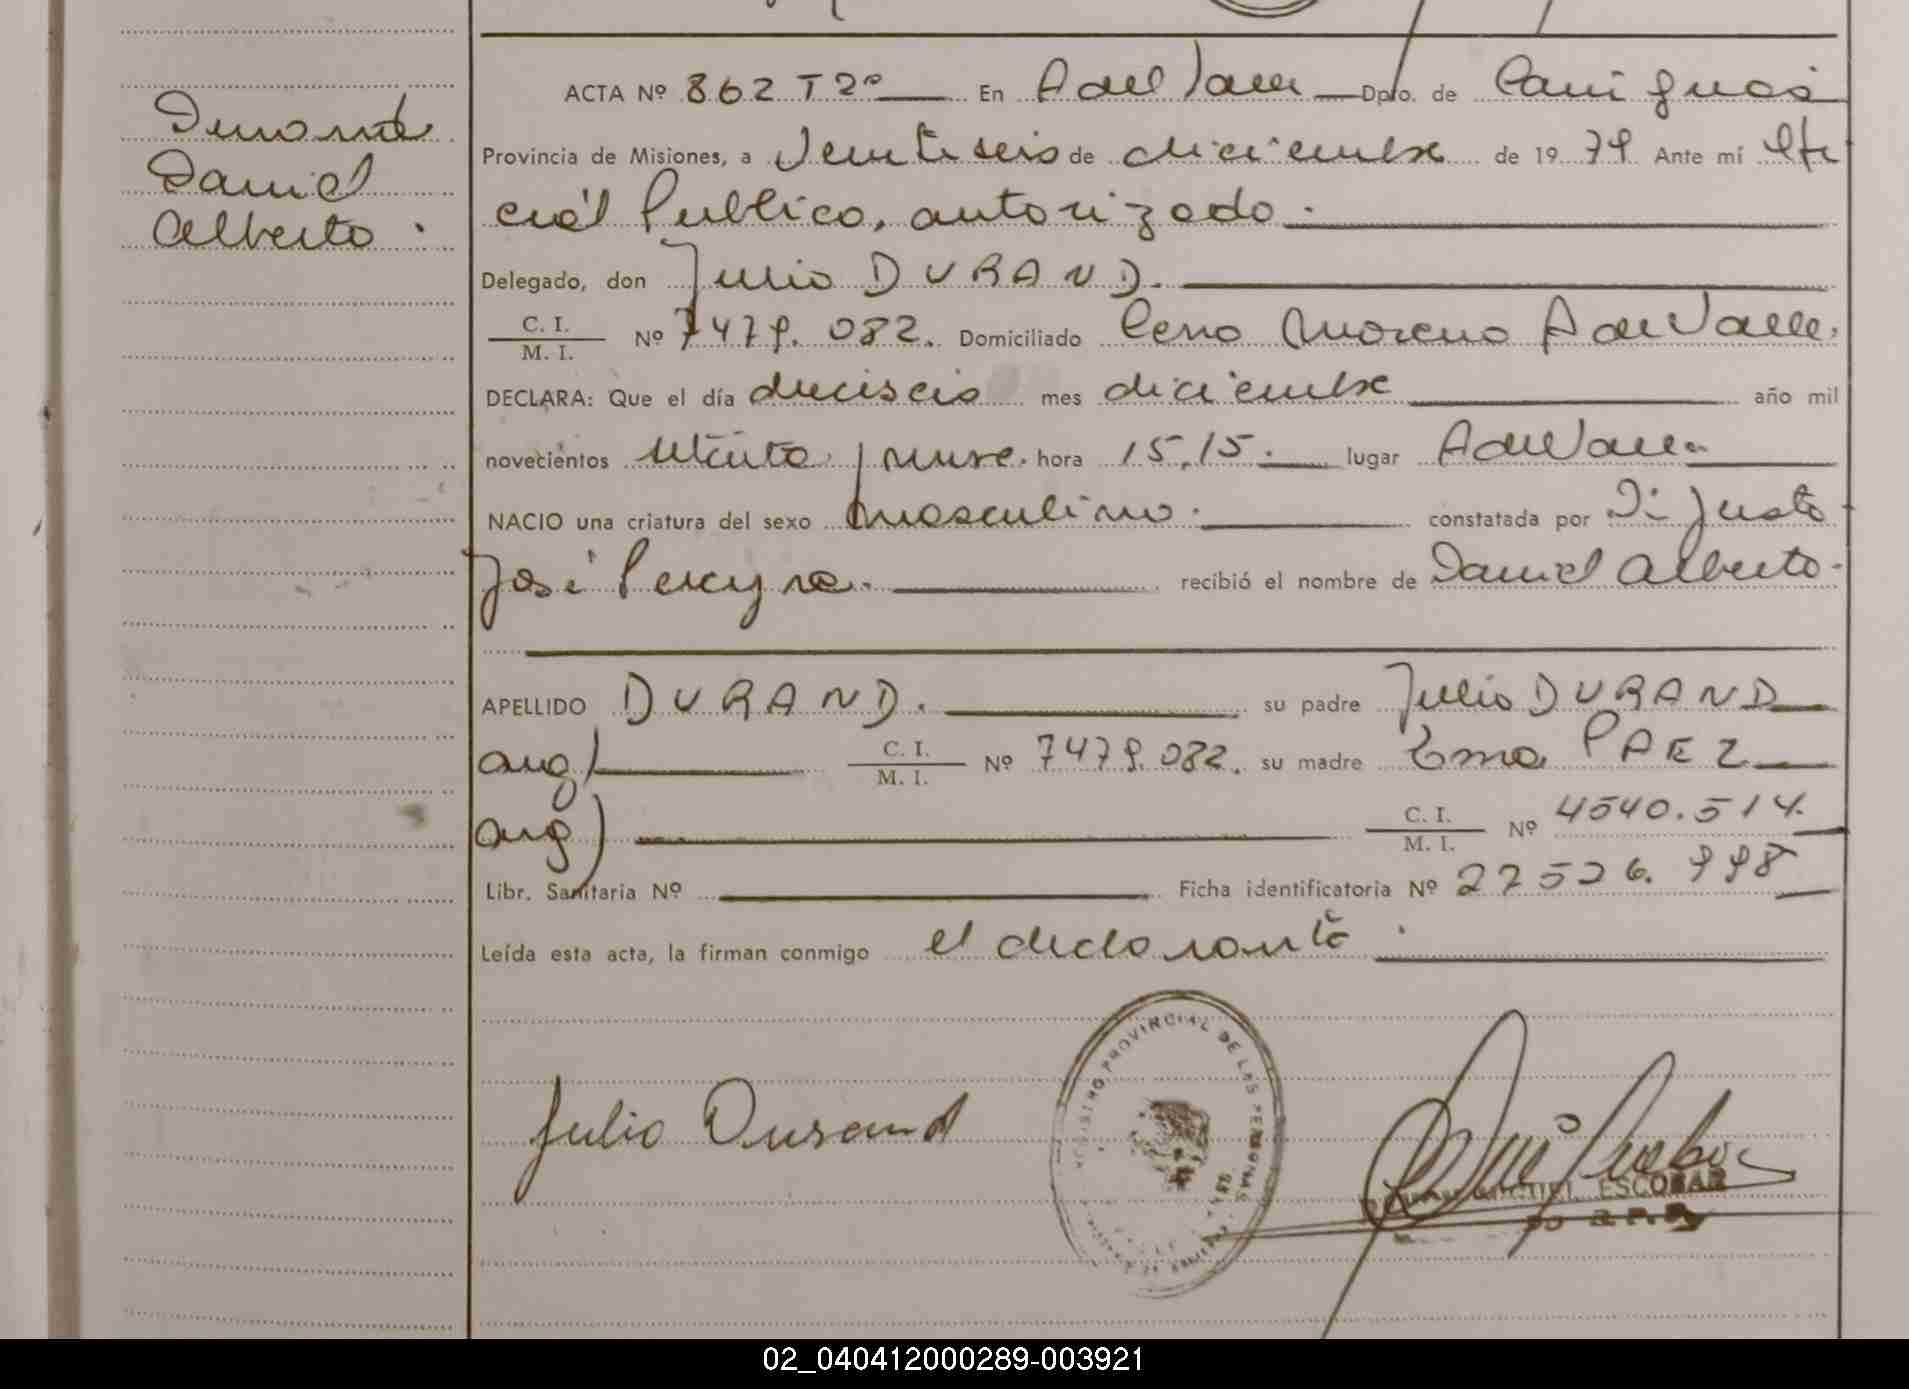 ACTA Nº 862 T 2º En A del Valle Dpto. de Cainguás
Durand
Daniel
Alberto.
Provincia de Misiones, a Veintiseis de diciembre de 1979 Ante mí Ofi
cial Publico, autorizado.
Delegado, don Julio DURAND.
C. I.
M. I. Nº 7479.082. Domiciliado Cerro Moreno A del Valle.
DECLARA: Que el día dieciseis mes diciembre año mil
novecientos setenta y nueve. hora 15,15. lugar A del Valle.
NACIO una criatura del sexo masculino. constatada por Di Justo
José Pereyra. recibió el nombre de Daniel Alberto.
APELLIDO DURAND. su padre Julio DURAND
arg) C. I.
M. I. Nº 7479.082. su madre Ema PAEZ
arg) C. I.
M. I. Nº 4540.514.
Libr. Sanitaria Nº Ficha identificatoria Nº 27526.998
Leída esta acta, la firman conmigo el declarante.
Julio Durand
REGISTRO PROVINCIAL DE LAS PERSONAS
ESCOBAR
02_040412000289-003921